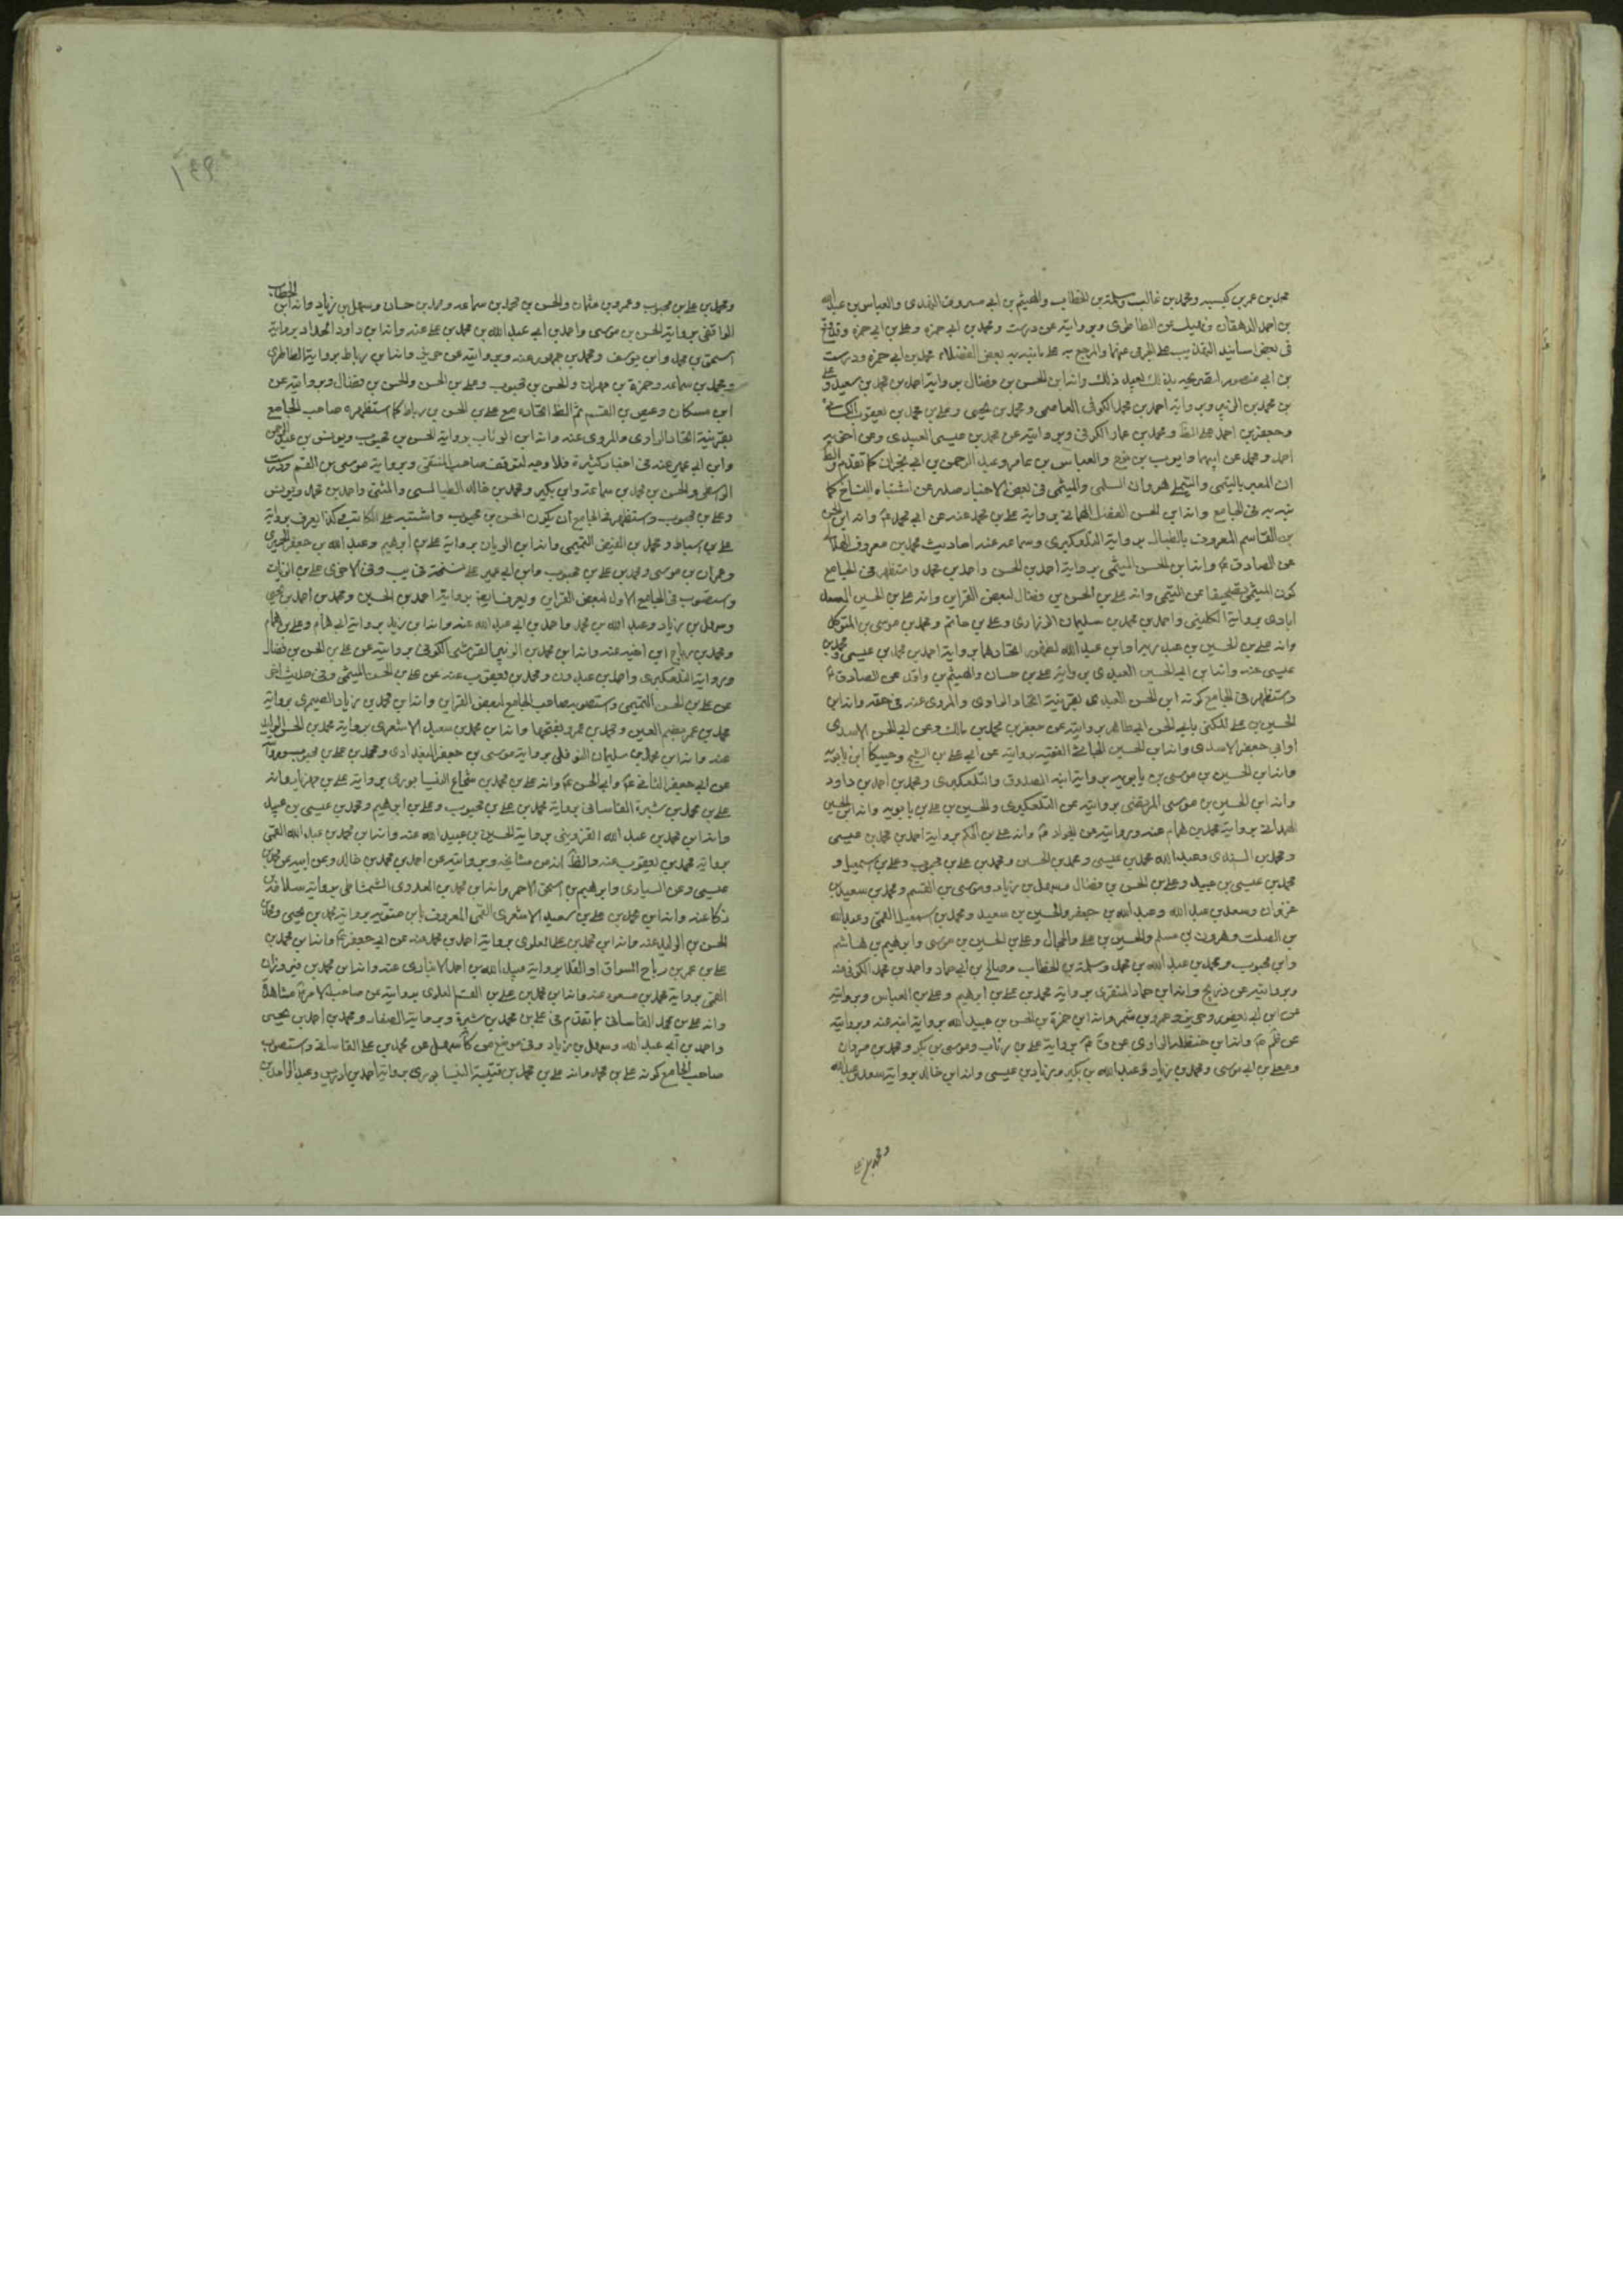 محمد بن عمر بن كيسبه ومحمد بن غالب وسلمة بن الخطاب والهيثم بن ابي مسروق النهدى والعباس بن عبد الله
بن احمد الدهقان عن الطاطرى وبروايته عن درست ومحمد بن ابي حمزه وعلى بن ابي حمزه
فى بعض اسانيد التهذيب على الجرمى عنهما والمرجع به على ما نبه به بعض الفضلاء محمد بن ابي حمزه ودرست
بن ابي منصور لتصريحه بذلك بعيد ذلك وانه ابن الحسن بن فضال برواية احمد بن محمد بن سعيد
بن محمد بن الزبير وبرواية احمد بن محمد الكوفى العاصمى ومحمد بن يحيى وعلى بن محمد بن يعقوب الكسائى
وجعفر بن احمد على الظ ومحمد بن عمار الكوفى وبروايته عن محمد بن عيسى العبيدى وعن اخويه
احمد ومحمد عن ابيهما وايوب بن نوح والعباس بن عامر وعبد الرحمن بن ابي نجران كما تقدم والظ
ان المعبر بالتيمى والتيملى هو وان السلمى والميثمى فى بعض الاخبار صدر عن اشتباه النساخ كما
نبه به فى الجامع وانه ابن الحسن برواية على بن محمد عنه عن ابي محمد ع وانه ابن الحسن
بن القاسم المعروف بالطبال برواية التلعكبرى وسماعه عنه احاديث محمد بن معروف الهلالى
عن الصادق ع وانه ابن الحسن الميثمى برواية احمد بن الحسن واحمد بن محمد واستظهر فى الجامع
كون الميثمى تصحيفا عن التيمى وانه على بن الحسن بن فضال لبعض القراين وانه على بن الحسين السعد
ابادى برواية الكلينى واحمد بن محمد بن سليمان الزرارى وعلى بن حاتم ومحمد بن موسى بن المتوكل
وانه على بن الحسين بن عبد ربه او ابن عبد الله لظهور اتحادهما برواية احمد بن محمد بن عيسى ومحمد بن
عيسى عنه وانه ابن ابي الحسين العبدى برواية على بن حسان والهيثم بن واقد عن الصادق ع
واستظهر فى الجامع كونه ابن الحسن العبدى بقرينة اتحاد الراوى والمروى عنه فى حقه وانه ابن
الحسين بن على المكنى بابي الحسن ابي طاهر بروايته عن جعفر بن محمد بن مالك وعن ابي الحسن الاسدى
او ابي جعفر الاسدى وانه ابن الحسين الفقيه بروايته عن ابي على بن
وانه ابن الحسين بن موسى بن بابويه برواية ابنه الصدوق والتلعكبرى ومحمد بن احمد بن داود
وانه ابن الحسين بن موسى المرتضى بروايته عن التلعكبرى والحسين بن على بن بابويه وانه ابن الحسين
الهمدانى برواية محمد بن همام عنه وبروايته عن الجواد ع وانه على بن الحكم برواية احمد بن محمد بن عيسى
ومحمد بن السندى وعبد الله محمد بن عيسى ومحمد بن الحسين ومحمد بن على بن محبوب وعلى بن اسمعيل و
محمد بن عيسى بن عبيد وعلى بن الحسن بن فضال وسهل بن زياد وموسى بن القسم ومحمد بن سعيد بن
غزوان وسعد بن عبد الله وعبد الله بن جعفر والحسين بن سعيد ومحمد بن اسمعيل القمى وعبد الله
بن الصلت وهرون بن مسلم والحسين بن على والحجال وعلى بن الحسين بن موسى وابرهيم بن هاشم
وابن محبوب ومحمد بن عبد الله بن محمد وسلمة بن الخطاب وصالح بن ابي حماد واحمد بن محمد الكوفى عنه
وبروايته عن ذريح وانه ابن حماد المنقرى برواية محمد بن على بن ابرهيم وعلى بن العباس وبروايته
عن ابن ابي يعفور وحريز وعمرو بن شمر وانه ابن حمزة بن الحسن بن عبيد الله برواية ابنه عنه وبروايته
عن ظم ع وانه ابن حنظلة الراوى عن ق ع برواية على بن رئاب وموسى بن بكر ومحمد بن مروان
وعلى بن ابي موسى ومحمد بن زياد وعبد الله بن بكير وبزياد بن عيسى وانه ابن خالد برواية سعد بن عبد الله
ومحمد بن على
ومحمد بن على بن محبوب وعمرو بن عثمان والحسن بن محمد بن سماعه ومحمد بن حسان وسهل بن زياد وانه ابن الخطاب
الواقفى برواية الحسن بن موسى واحمد بن ابي عبد الله بن محمد بن على عنه وانه ابن داود الحداد برواية
اسحق بن محمد وابن يوسف ومحمد بن جمهور عنه وبروايته عن حريز وانه ابن رباط برواية الطاطرى
ومحمد بن سماعه وحمزة بن مهران والحسن بن محبوب وعلى بن الحسن والحسن بن فضال وبروايته عن
ابن مسكان وعيص بن القسم ثم الظ اتحاده مع على بن الحسن بن رباط كما استظهره صاحب الجامع
بقرينة اتحاد الراوى والمروى عنه وانه ابن الرئاب برواية الحسن بن محبوب ويونس بن عبد الرحمن
وابن ابي عمير عنه فى اخبار كثيرة فلا وجه لتوقف صاحب المنتقى وبرواية موسى بن القسم
الواسطى والحسن بن محمد بن سماعة وابن بكير ومحمد بن خالد الطيالسى والمثنى واحمد بن محمد ويونس
وعلى بن محبوب واستظهر فى الجامع ان يكون الحسن بن محبوب واشتبه على الكاتب وكذا يعرف برواية
على بن اسباط ومحمد بن الفيض التميمى وانه ابن الريان برواية على بن ابرهيم وعبد الله بن جعفر الحميرى
وعمران بن موسى ومحمد بن على بن محبوب وابن ابي عمير على نسخة فى يب وفى الاخرى على بن الزيات
واستصوب فى الجامع الاول لبعض القراين ويعرف ايضا برواية احمد بن الحسين ومحمد بن احمد بن يحيى
وسهل بن زياد وعبد الله بن محمد واحمد بن ابي عبد الله عنه وانه ابن زيد برواية ابي همام وعلى بن همام
ومحمد بن رباح ابن اخيه عنه وانه ابن محمد بن الزبير القرشى الكوفى بروايته عن على بن الحسن بن فضال
وبرواية التلعكبرى واحمد بن عبدون ومحمد بن يعقوب عنه عن على بن الحسن الميثمى وفى حديث اخر
عن على بن الحسن التميمى واستصوبه صاحب الجامع لبعض القراين وانه ابن محمد بن زياد الصيمرى برواية
محمد بن عمر بضم العين ومحمد بن عمرو بفتحها وانه ابن محمد بن سعيد الاشعرى برواية محمد بن الحسن الوليد
عنه وانه ابن محمد بن سليمان النوفلى برواية موسى بن جعفر البغدادى ومحمد بن على بن محبوب وبروايته
عن ابي جعفر الثانى ع وابي الحسن ع وانه على بن محمد بن شجاع النيسابورى برواية على بن مهزيار وانه
على بن محمد بن شيرة القاسانى برواية محمد بن على بن محبوب وعلى بن ابرهيم ومحمد بن عيسى بن عبيد
وانه ابن محمد بن عبد الله القزوينى برواية الحسين بن عبيد الله عنه وانه ابن محمد بن عبد الله القمى
برواية محمد بن يعقوب عنه والظ انه من مشايخه وبروايته عن احمد بن محمد بن خالد وعن ابيه عن محمد بن
عيسى وعن السيارى وابرهيم بن اسحق الاحمر وانه ابن محمد بن العدوى الشمشاطى برواية سلامة بن
ذكا عنه وانه ابن محمد بن على بن سعيد الاشعرى القمى المعروف بابن متويه برواية محمد بن يحيى ومحمد بن
الحسن بن الوليد عنه وانه ابن محمد بن على العلوى برواية احمد بن محمد عنه عن ابي جعفر ع وانه ابن محمد بن
على بن عمر بن رباح السواق او القلا برواية عبيد الله بن احمد الانبارى عنه وانه ابن محمد بن فيروزان
القمى برواية محمد بن مسعود عنه وانه ابن محمد بن على بن القسم العلوى بروايته عن صاحب الامر ع مشاهدة
وانه على بن محمد القاسانى بما تقدم فى على بن محمد بن شيرة وبرواية الصفار ومحمد بن احمد بن يحيى
واحمد بن ابي عبد الله وسهل بن زياد وفى موضع من كا سهل عن محمد بن على القاسانى واستصوب
صاحب الجامع كونه على بن محمد وانه على بن محمد بن قتيبة النيسابورى برواية احمد بن ادريس وعبد الواحد بن